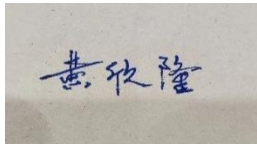 黄欣隆